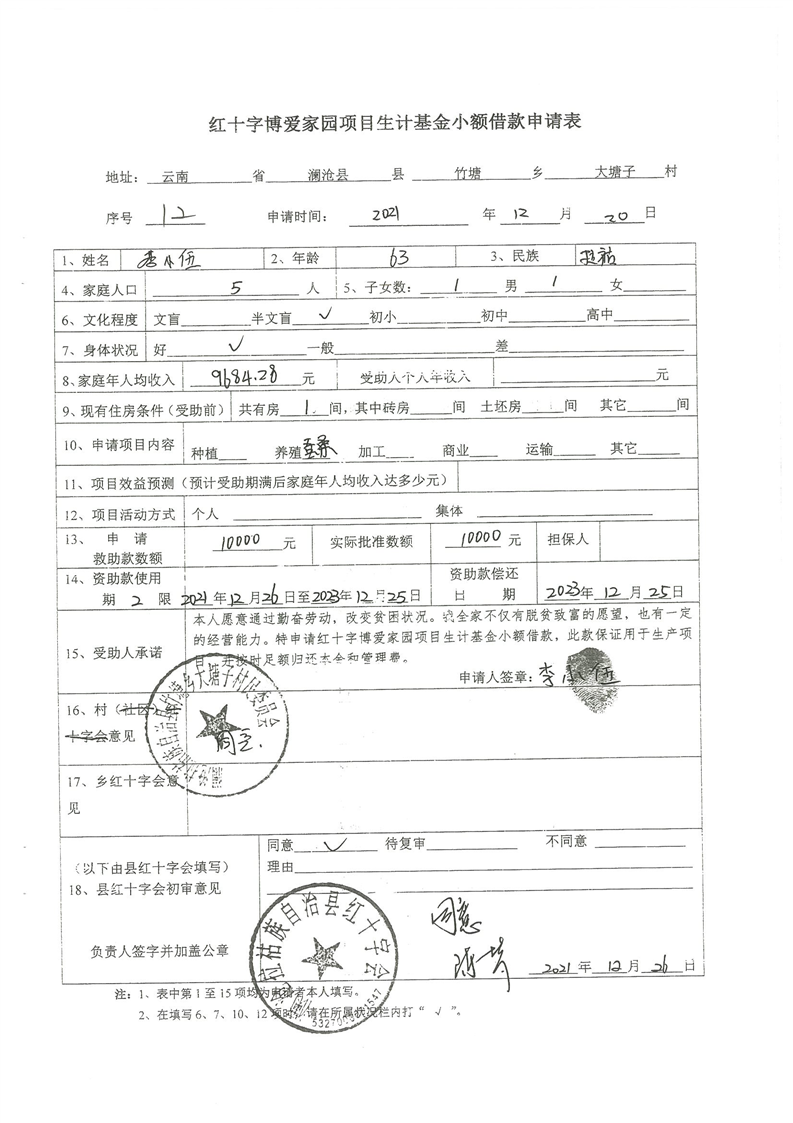 红十字博爱家园项目生计基金小额借款申请表
地址: 云南 省 澜沧县 县 竹塘 乡 大塘子 村
序号 12 申请时间: 2021 年 12 月 20 日
1、姓名 李小伍 2、年龄 63 3、民族 拉祜
4、家庭人口 5 人 5、子女数: 1 男 1 女
6、文化程度 文盲 半文盲 √ 初小 初中 高中
7、身体状况 好 √ 一般 差
8、家庭年人均收入 9684.28 元 受助人个人年收入 元
9、现有住房条件(受助前) 共有房 1 间,其中砖房 间 土坯房 间 其它 间
10、申请项目内容 种植 养殖 蚕桑 加工 商业 运输 其它
11、项目效益预测(预计受助期满后家庭年人均收入达多少元)
12、项目活动方式 个人 集体
13、 申 请 救助款数额 10000 元 实际批准数额 10000 元 担保人
14、资助款使用 期 2 限 2021年12月26日至2023年12月25日 资助款偿还 日 期 2023年 12 月 25 日
本人愿意通过勤奋劳动,改变贫困状况。我全家不仅有脱贫致富的愿望,也有一定
的经营能力。特申请红十字博爱家园项目生计基金小额借款,此款保证用于生产项
15、受助人承诺
目,并按时足额归还本金和管理费。
申请人签章: 李小伍
16、村(社区)
十字会意见
同意.
竹塘乡大塘子村民委员会
17、乡红十字会意
见
同意 √ 待复审 不同意
理由
(以下由县红十字会填写)
18、县红十字会初审意见
拉祜族自治县红十字会
同意
负责人签字并加盖公章
2021 年 12 月 26 日
注: 1、表中第1至15项均为申请者本人填写。
2、在填写6、7、10、12项时,请在所属状况栏内打“ √ ”。